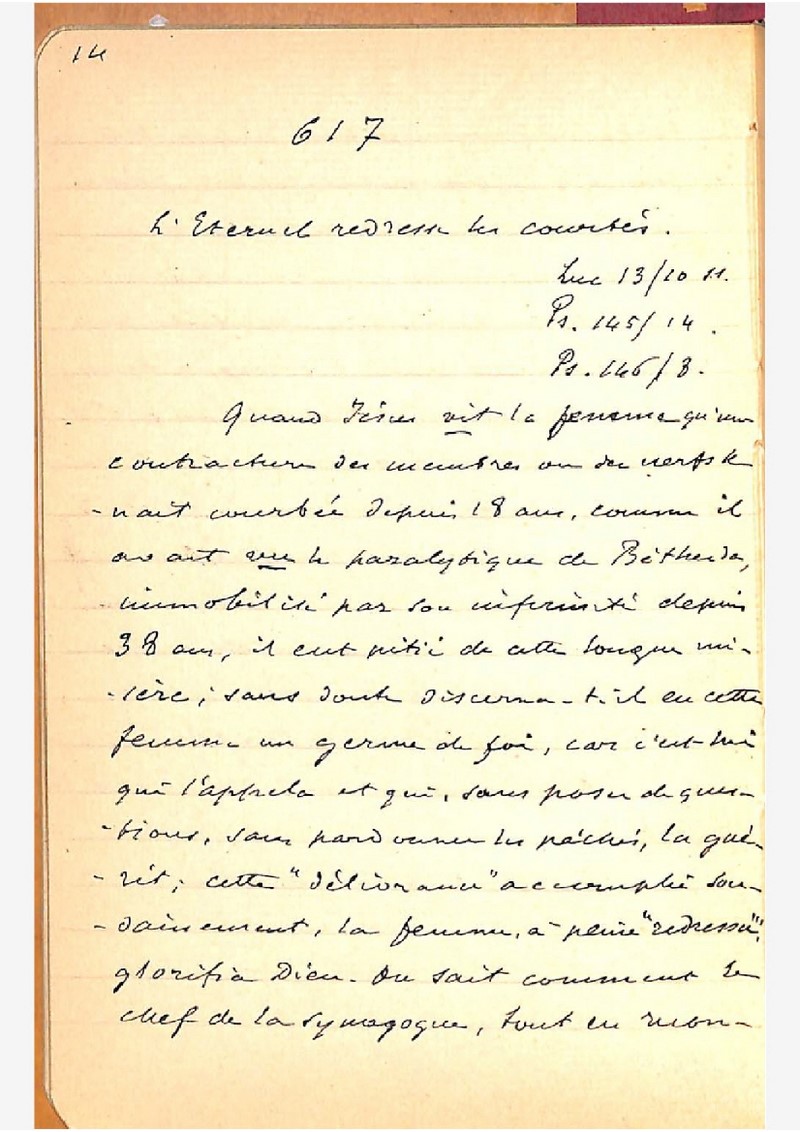 14
617
L'Eternel redresse les courbés.
Luc 13/10 ss.
Ps. 145/14.
Ps. 146/8.
Quand Jésus vit la femme qu'une
contracture des membres ou des nerfs te
-nait courbée depuis 18 ans, comme il
avait vu le paralytique de Béthesda,
immobilisé par son infirmité depuis
38 ans, il eut pitié de cette longue mi-
-sère; sans doute discerna-t-il en cette
femme un germe de foi, car c'est lui
qui l'appela et qui, sans poser de ques-
-tions, sans pardonner les péchés, la gué-
-rit; cette "délivrance" accomplie sou-
-dainement, la femme, à peine "redressée",
glorifia Dieu. On sait comment le
chef de la synagogue, tout en mon-